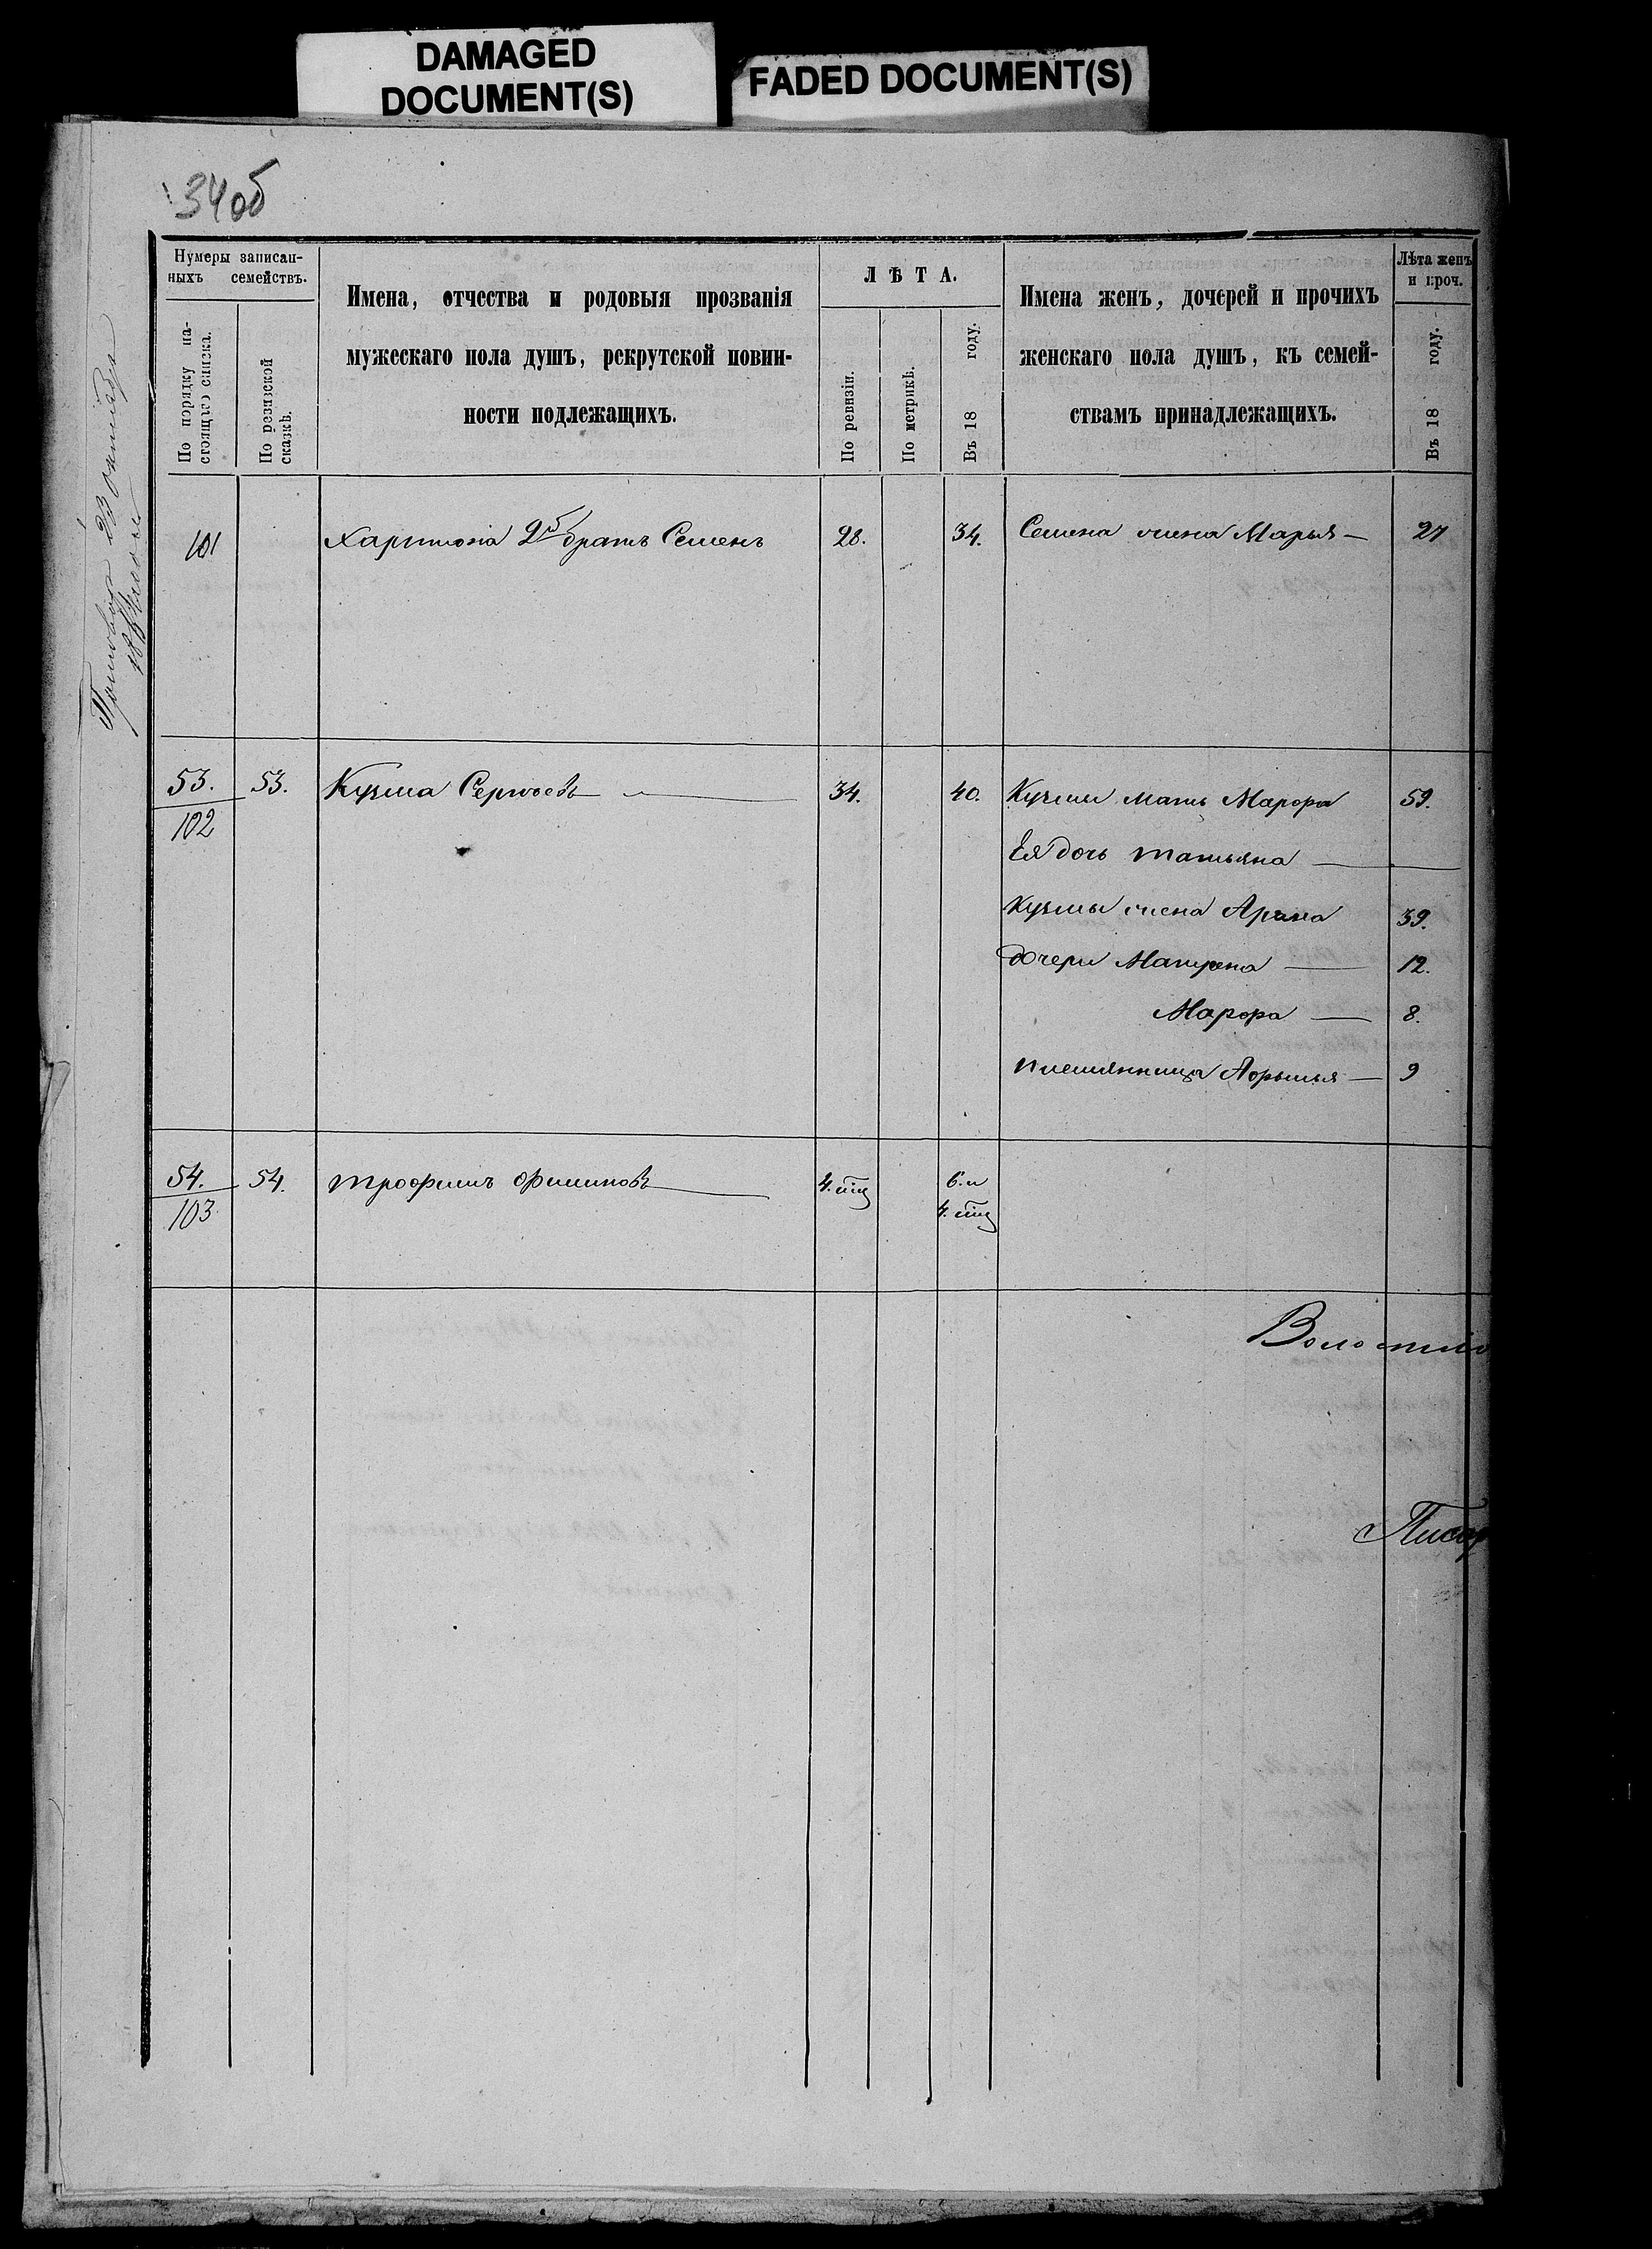 DAMAGED
DOCUMENT(S)
FADED DOCUMENT(S)
34об
Нумеры записан-
ныхъ семействъ.
По порядку на-
стоящаго списка.
По ревизской
сказкѣ.
Имена, отчества и родовыя прозванія
мужескаго пола душъ, рекрутской повин-
ности подлежащихъ.
ЛѢТА.
По ревизіи.
По метрикѣ.
Въ 18 году.
Имена женъ, дочерей и прочихъ
женскаго пола душъ, къ семей-
ствамъ принадлежащихъ.
Лѣта женъ
и проч.
Въ 18 году.
23 октября
101 Харитона 2й братъ Семенъ 28. 34. Семена жена Марья — 27
53. 53. Кузма Сергѣевъ — 34. 40. Кузмы мать Марфа 59.
102
Ея дочь Татьяна —
Кузмы жена Арина 39.
дочери Матрена — 12.
Марфа — 8.
племянница — 9
54. 54. Трофимъ Филиповъ — 4. 6. и
103 4.
Волостно
Писар